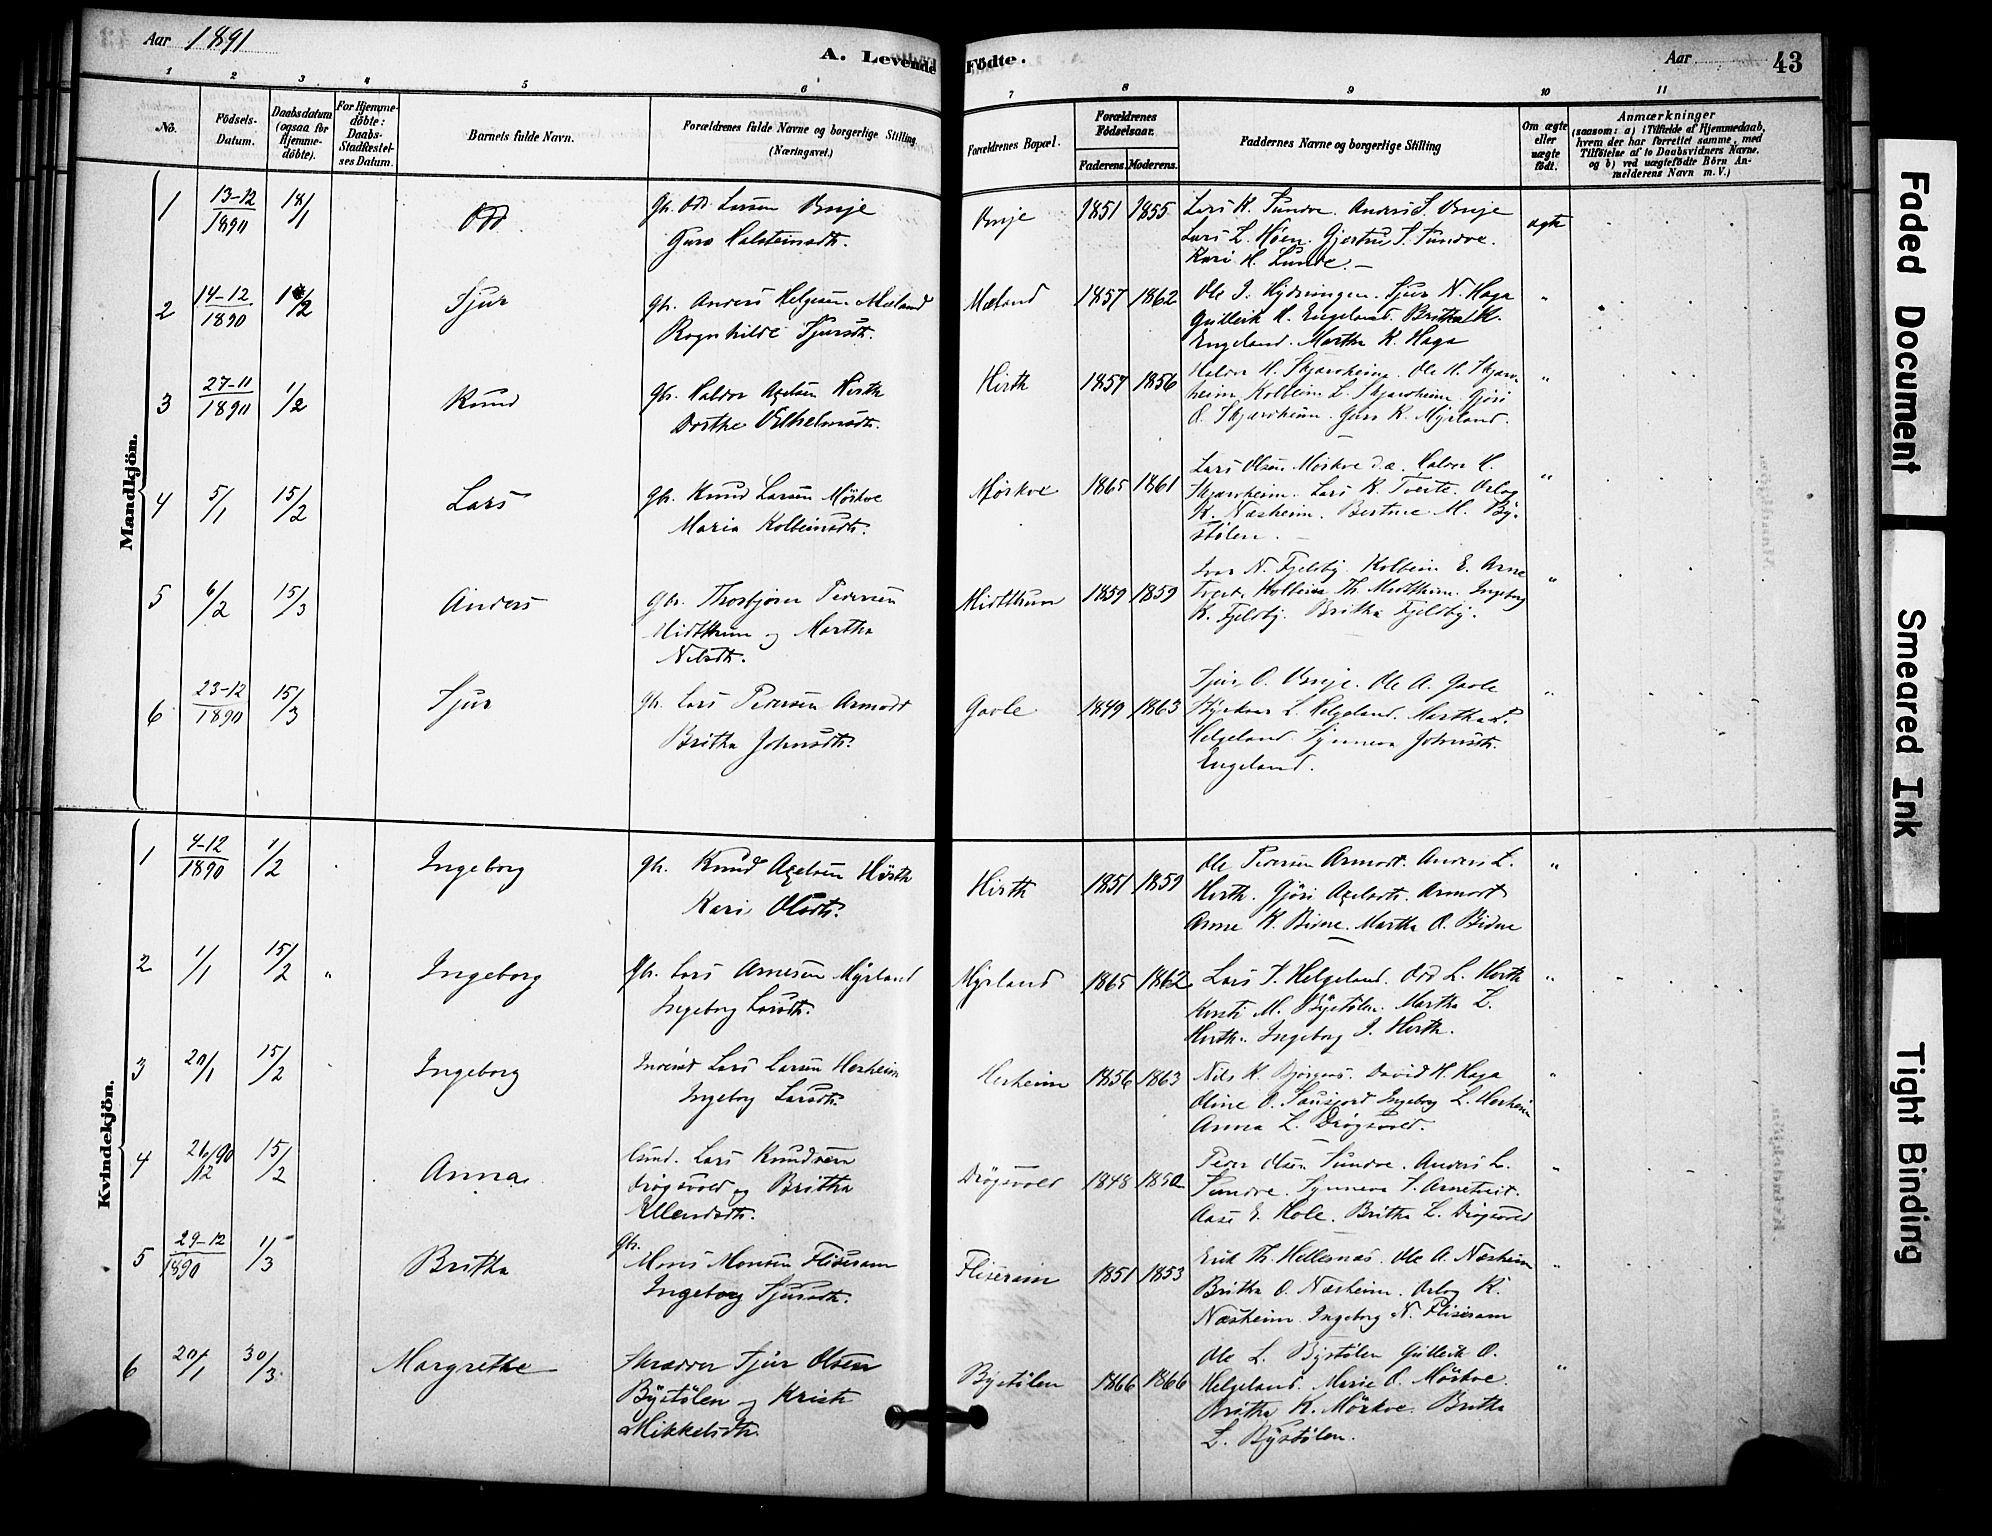 Aar 1891
A. Levende Födte.
Aar
43
1 2 3 4 5 6 7 8 9 10 11
No.
Födsels-
Datum.
Daabsdatum
(ogsaa for
Hjemme-
döbte).
For Hjemme-
döbte:
Daabs-
Stadfæstel-
ses Datum.
Barnets fulde Navn.
Forældrenes fulde Navne og borgerlige Stilling
(Næringsvei.)
Forældrenes Bopæl.
Forældrenes
Födselsaar.
Faderens. Moderens.
Faddernes Navne og borgerlige Stilling
Om ægte
eller
uægte
födt.
Anmærkninger
(saasom: a) i Tilfælde af Hjemmedaab,
hvem der har forrettet samme, med
Tilföielse af to Daabsvidners Navne,
og b) ved uægtefödte Börn An-
melderens Navn m. V.)
Mandkjön.
1 13-12 1890 18/1 Odd gbr. Odd Larsen Ousje
Guro Halsteinsdtr.
1851 1855 Lars K. Sundve. Anders S.
Lars L. Höen. Gjertrud S. Sundve.
Kari H. Lunde.
ægte
2 14-12 1890 Sjur gbr. Anders Helgesen Mæland
Ragnhilde Sjursdtr.
Mæland 1857 1862 Ole I. Sjur N. Haga
Gulleik H. Engeland. Britha K.
Engeland. Martha K. Haga
"
3 27-11 1890 1/2 Knud gbr. Haldor Axelsen Hirth
Dorthe Vilhelmsdtr.
Hirth 1857 1856 Haldor H. Skjærvheim. Ole H. Skjærv-
heim Kolbein L. Skjærvheim. Gjöri
O. Skjærvheim. Guro K. Myrland.
"
4 5/1 15/2 Lars gbr. Knud Larsen Mörkve
Maria Kolbeinsdtr.
Mörkve 1865 1861 Lars Olsen Mörkve d.æ. Halvor H.
Skjærvheim. Lars K. Tverte. Orlog
K. Næsheim. Bertine M. By-
stölen.
"
5 6/2 15/3 Anders gbr. Thorbjörn Pedersen
Midttun og Martha
Nilsdtr.
Midttun 1859 1859 Ivar N. Fjelsby. Kolbein E. Arne
Kolbein Th. Midttun. Ingeborg
K. Fjelsby. Britha Fjelsby.
"
6 23-12 1890 15/3 Sjur gbr. Lars Pedersen Armodt
Britha Johnsdtr.
Gavle 1849 1863 Sjur O. Ole A. Gavle
L. Helgeland. Martha
Helgeland. Synneva Johnsdtr.
Engeland.
"
Kvindekjön.
1 4-12 1890 1/2 Ingeborg gbr. Knud Axelsen Hirth
Kari Olsdtr.
Hirth 1851 1859 Ole Pedersen Armodt. Anders L.
Herth. Gjöri Axelsdtr. Armodt
Anne K. Bidne. Martha O. Bidne
"
2 1/1 15/2 " Ingeborg gbr. Lars Arnesen Myrland
Ingeborg Larsdtr.
Myrland 1865 1862 Lars S. Helgeland. Odd L. Herth
Kristi M. Bystölen. Martha L.
Herth. Ingeborg I. Herth.
"
3 20/1 15/2 Ingeborg Inderst Lars Larsen Herheim
Ingeborg Larsdtr.
Herheim 1856 1863 Nils K. Björgens. David H. Haga
Oline O. Ingeborg L. Herheim
Anna L. Drögsvold.
"
4 26/12 90 15/2 Anna Lars Knudsen
Drögsvold og Britha
Ellendsdtr.
Drögsvold 1848 1850 Peder Olsen Sundve. Anders L.
Sundve. Synneva S. Arnetveit.
Aase E. Hole. Britha L. Drögsvold
"
5 29-12 1890 1/3 Britha gbr. Mons Monsen Fliseram
Ingeborg Sjursdtr.
Fliseram 1851 1853 Erik Th. Hellesnæs. Ole A. Næsheim
Britha O. Næsheim. Orlog K.
Næsheim. Ingeborg N. Fliseram
"
6 20/1 30/3 Margrethe Skræder Sjur Olsen
Bystölen og Kristi
Mikkelsdtr.
Bystölen 1866 1866 Ole L. Bystölen Gulleik O.
Helgeland. Marie O. Mörkve.
Britha K. Mörkve. Britha
L. Bystölen.
"
Faded Document
Smeared Ink
Tight Binding